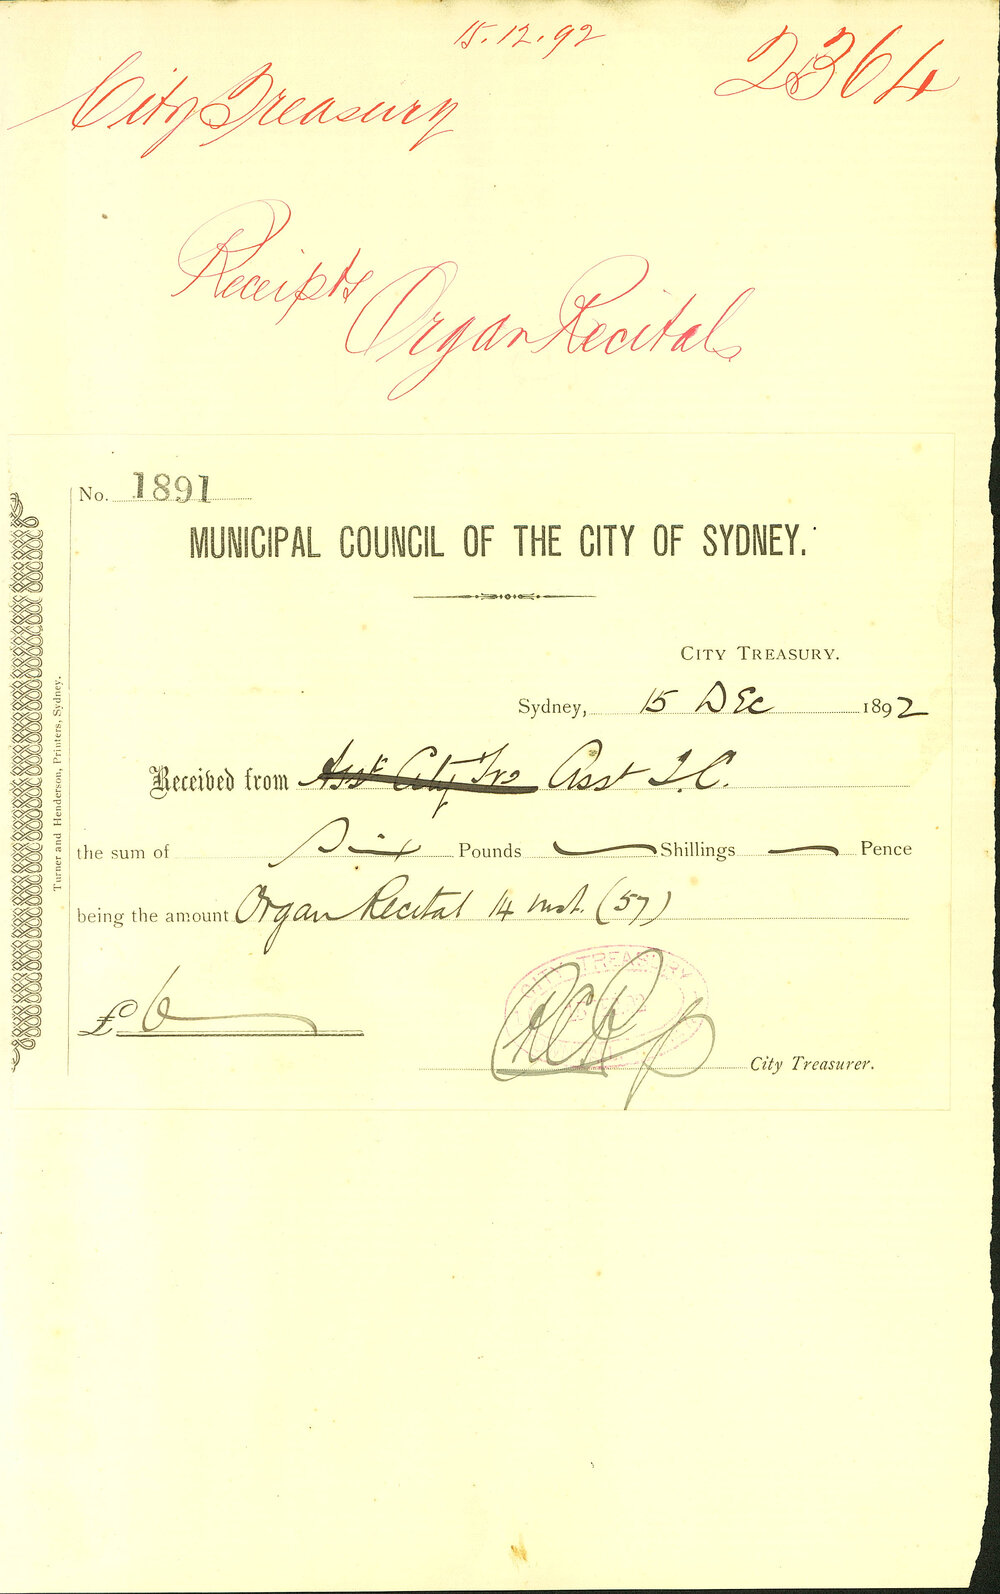 15.12.92
2364
City Treasury
Receipts
Organ Recitals
No. 1891
MUNICIPAL COUNCIL OF THE CITY OF SYDNEY.
CITY TREASURY.
Sydney, 15 Dec 1892
Received from Asst City Trs Asst T.C.
the sum of Six Pounds — Shillings — Pence
being the amount Organ Recital 14 inst. (57)
£ 6
CITY TREASURY
City Treasurer.
Turner and Henderson, Printers, Sydney.